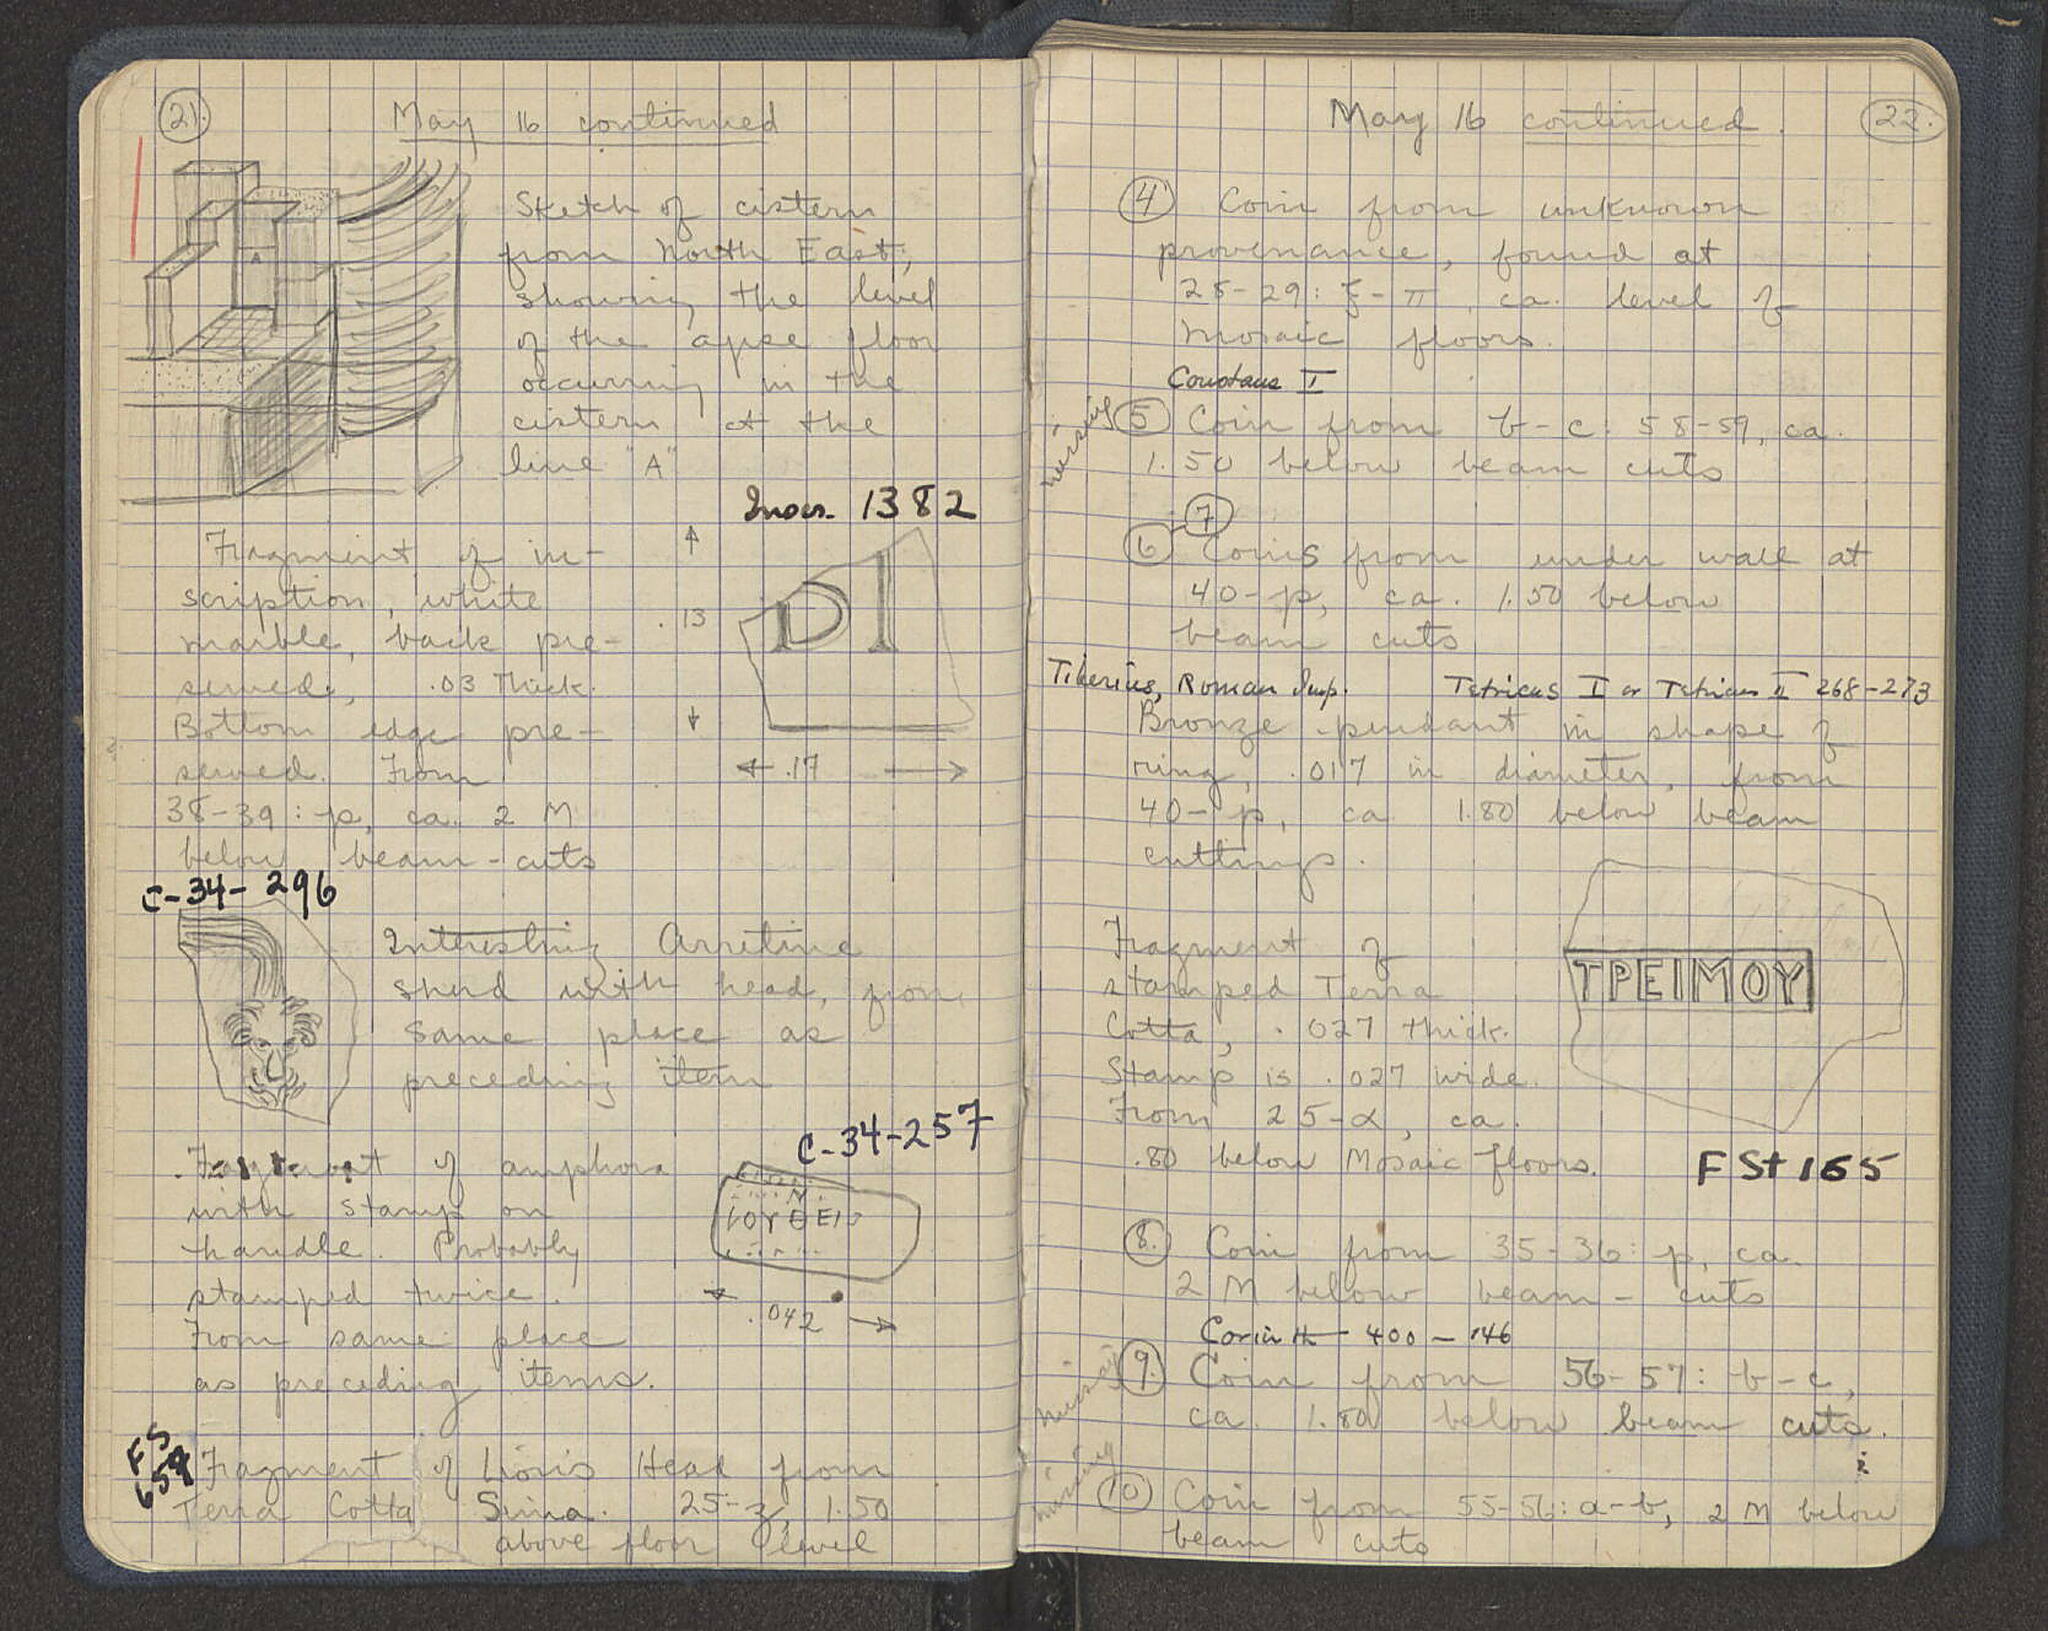 21.
May 16 continued
Sketch of cistern
from North East,
showing the level
of the apse floor
occurring in the
cistern at the
line "A"
A
Inscr. 1382
Fragment of in-
scription, white
marble, back pre-
served, .03 thick.
Bottom edge pre-
served. From
38-39: p, ca. 2 M
below beam-cuts
.13
DI
.17
C-34-296
Interesting Arretine
sherd with head, from
same place as
preceding item
C-34-257
Fragment of amphora
with stamp on
handle. Probably
stamped twice.
From same place
as preceding items.
.042
FS
659
Fragment of Lion's Head from
Terra Cotta Sima. 25-z, 1.50
above floor level
May 16 continued.
22.
4 Coin from unknown
provenance, found at
28-29: ξ-π, ca. level of
Mosaic floors.
Constans I
missing
5 Coin from b-c: 58-59, ca.
1.50 below beam cuts
7
6 Coins from under wall at
40-p, ca. 1.50 below
beam cuts
Tiberius, Roman Imp. Tetricus I or Tetricus II 268-273
Bronze pendant in shape of
ring, .017 in diameter, from
40-p, ca 1.80 below beam
cuttings.
Fragment of
stamped Terra
Cotta, .027 thick.
Stamp is .027 wide.
From 25-α, ca.
.80 below Mosaic floors.
ΤΡΕΙΜΟΥ
FSt 165
8. Coin from 35-36: p, ca.
2 M below beam-cuts
Corinth 400-146
missing
9. Coin from 56-57: b-c,
ca. 1.80 below beam cuts.
missing
10 Coin from 55-56: a-b, 2 M below
beam cuts